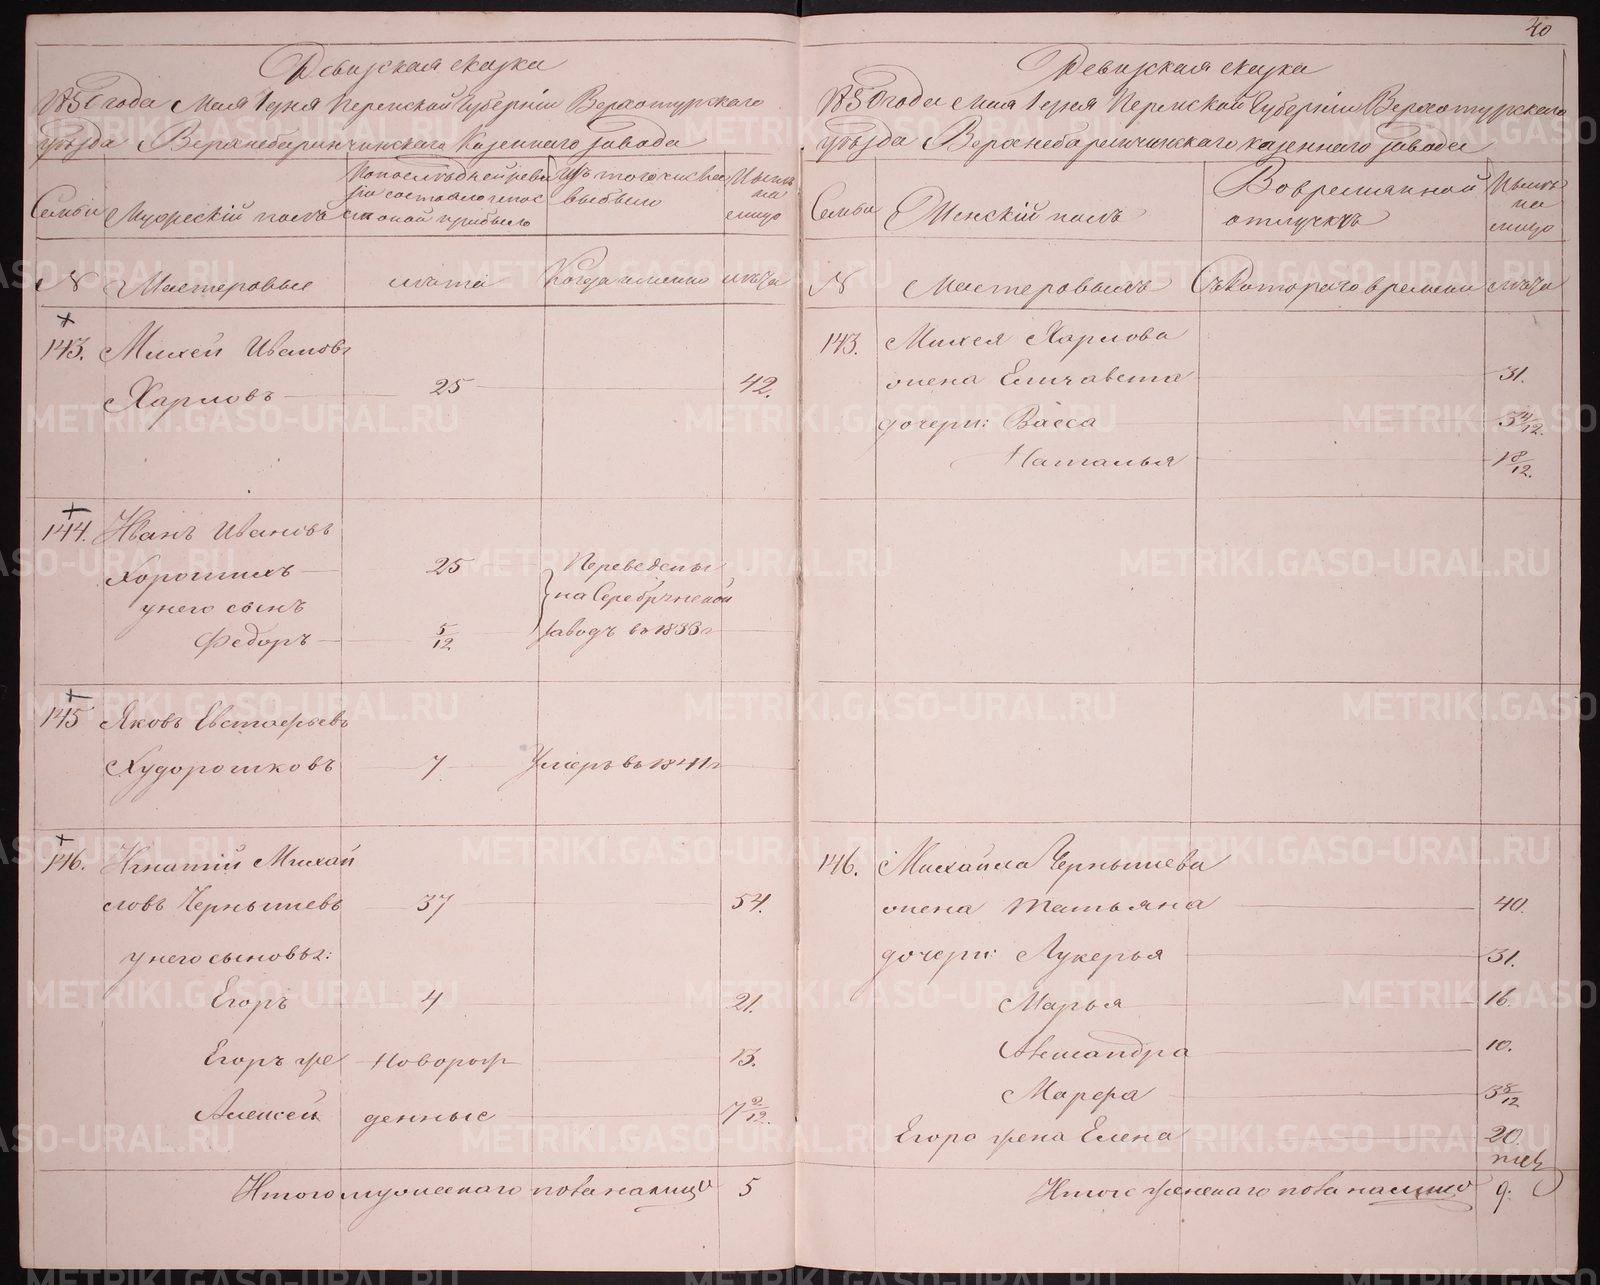 Ревизская сказка
1850 года Мая 1 дня Пермской Губернии Верхотурскаго
уѣзда Верхнебаранчинскаго Казеннаго завода
Семьи
Мужескій полъ
По последней ревизіи состояло и после оной прибыло
Изъ того числа выбыло
Нынѣ на лицо
N
Мастеровые
лѣта
Когда именно
лѣта
143. Михей Ивановъ
Харловъ 25 42.
144. Иванъ Ивановъ
Хорошихъ 25 Переведены
у него сынъ на Серебрянской
Федоръ 5/12 заводъ въ 1833 г
145 Яковъ Евстафьевъ
Худорошковъ 7 Умеръ въ 1841 г
146. Игнатій Михай
ловъ Чернышевъ 37 54.
у него сыновья:
Егоръ 4 21.
Егоръ же Новорож 13.
Алексей денные 7 2/12.
Итого мужескаго пола на лицо 5
40
Ревизская сказка
1850 года Мая 1 дня Пермской Губернии Верхотурскаго
уѣзда Верхнебаранчинскаго казеннаго завода
Семьи
Женскій полъ
Во временной отлучкѣ
Нынѣ на лицо
N
Мастеровыхъ
Съ Котораго времени
лѣта
143. Михея Харлова
жена Елизавета 31.
дочери: Васса
Наталья 1 8/12.
146. Михайла Чернышева
жена Татьяна 40.
дочери: Лукерья 31.
Марья 16.
Александра 10.
Марфа 3 8/12
Егора жена Елена 20.
Итого женскаго пола на лицо 9.
METRIKI.GASO-URAL.RU